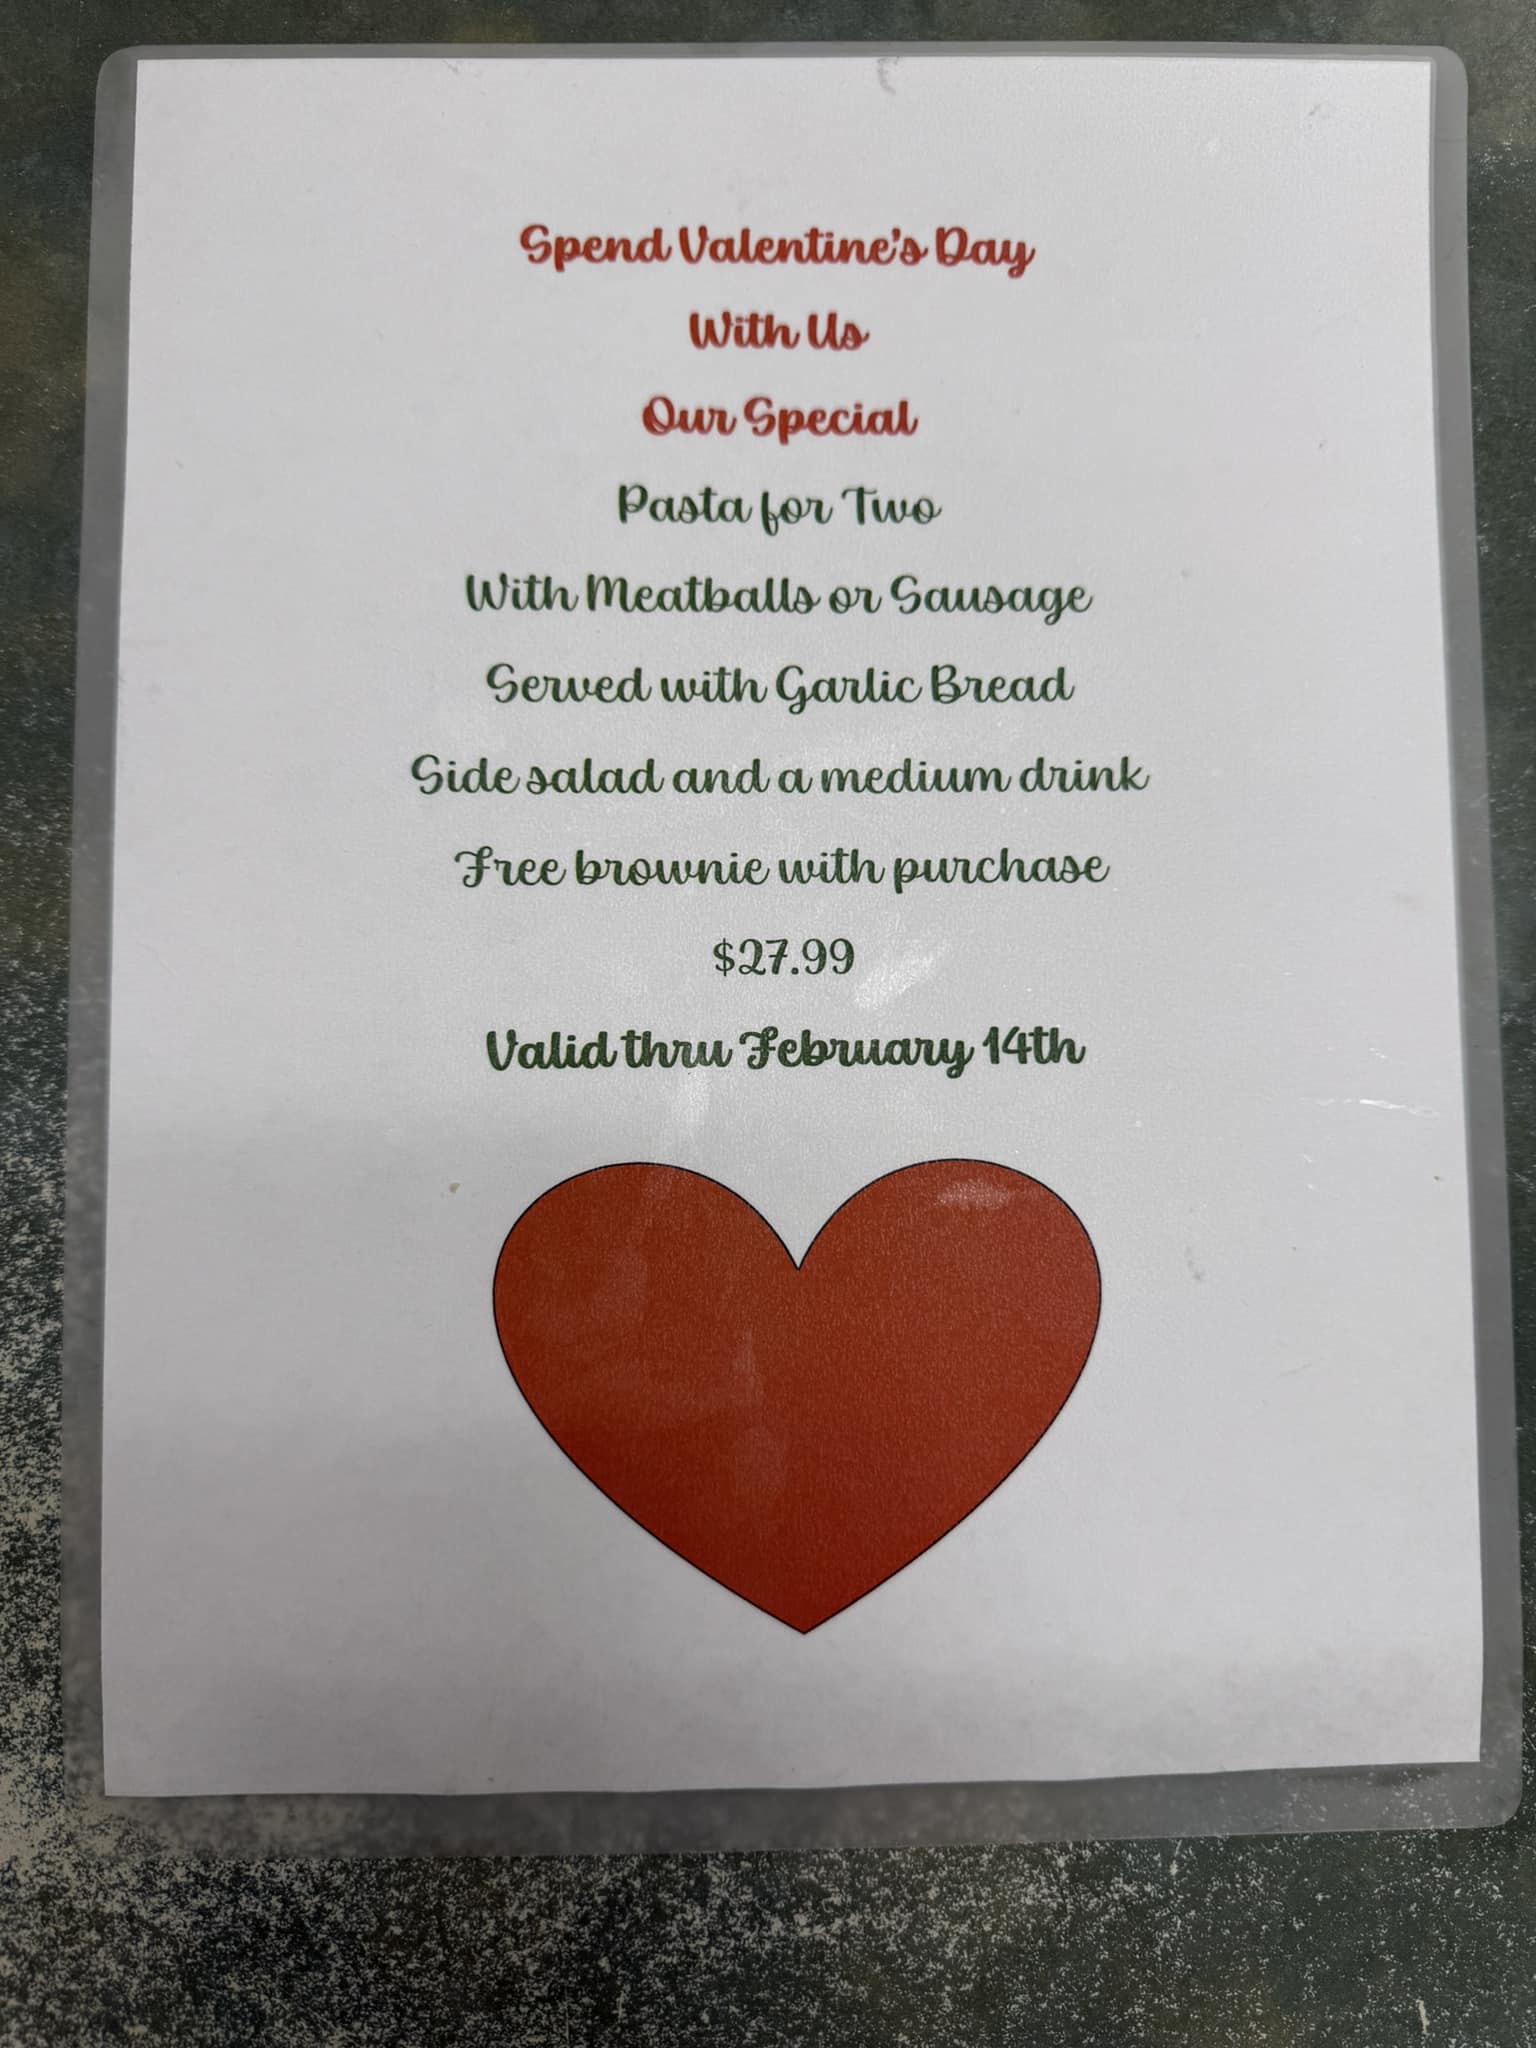 Spend Valentine's Day
With Us
Our Special
Pasta for Two
With Meatballs or Sausage
Served with Garlic Bread
Side salad and a medium drink
Free brownie with purchase
$27.99
Valid thru February 14th